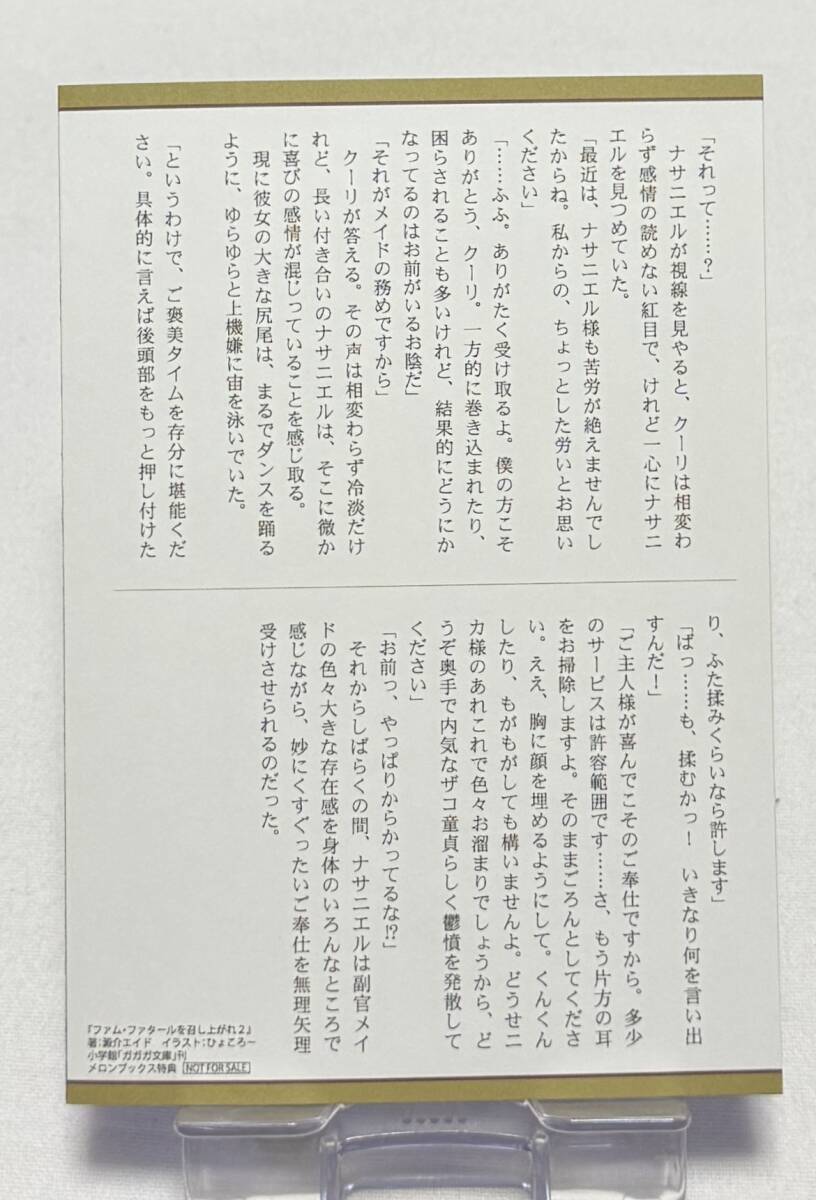 「それって……？」
　ナサニエルが視線を見やると、クーリは相変わ
らず感情の読めない紅目で、けれど一心にナサニ
エルを見つめていた。
「最近は、ナサニエル様も苦労が絶えませんでし
たからね。私からの、ちょっとした労いとお思い
ください」
「……ふふ。ありがたく受け取るよ。僕の方こそ
ありがとう、クーリ。一方的に巻き込まれたり、
困らされることも多いけれど、結果的にどうにか
なってるのはお前がいるお陰だ」
「それがメイドの務めですから」
　クーリが答える。その声は相変わらず冷淡だけ
れど、長い付き合いのナサニエルは、そこに微か
に喜びの感情が混じっていることを感じ取る。
　現に彼女の大きな尻尾は、まるでダンスを踊る
ように、ゆらゆらと上機嫌に宙を泳いでいた。
「というわけで、ご褒美タイムを存分に堪能くだ
さい。具体的に言えば後頭部をもっと押し付けた
り、ふた揉みくらいなら許します」
「ばっ……も、揉むかっ！　いきなり何を言い出
すんだ！」
「ご主人様が喜んでこそのご奉仕ですから。多少
のサービスは許容範囲です……さ、もう片方の耳
をお掃除しますよ。そのままごろんとしてくださ
い。ええ、胸に顔を埋めるようにして。くんくん
したり、もがもがしても構いませんよ。どうせニ
カ様のあれこれで色々お溜まりでしょうから、ど
うぞ奥手で内気なザコ童貞らしく鬱憤を発散して
ください」
「お前っ、やっぱりからかってるな!?」
　それからしばらくの間、ナサニエルは副官メイ
ドの色々大きな存在感を身体のいろんなところで
感じながら、妙にくすぐったいご奉仕を無理矢理
受けさせられるのだった。
『ファム・ファタールを召し上がれ２』
著：澱介エイド　イラスト：ひょころー
小学館「ガガガ文庫」刊
メロンブックス特典 NOT FOR SALE